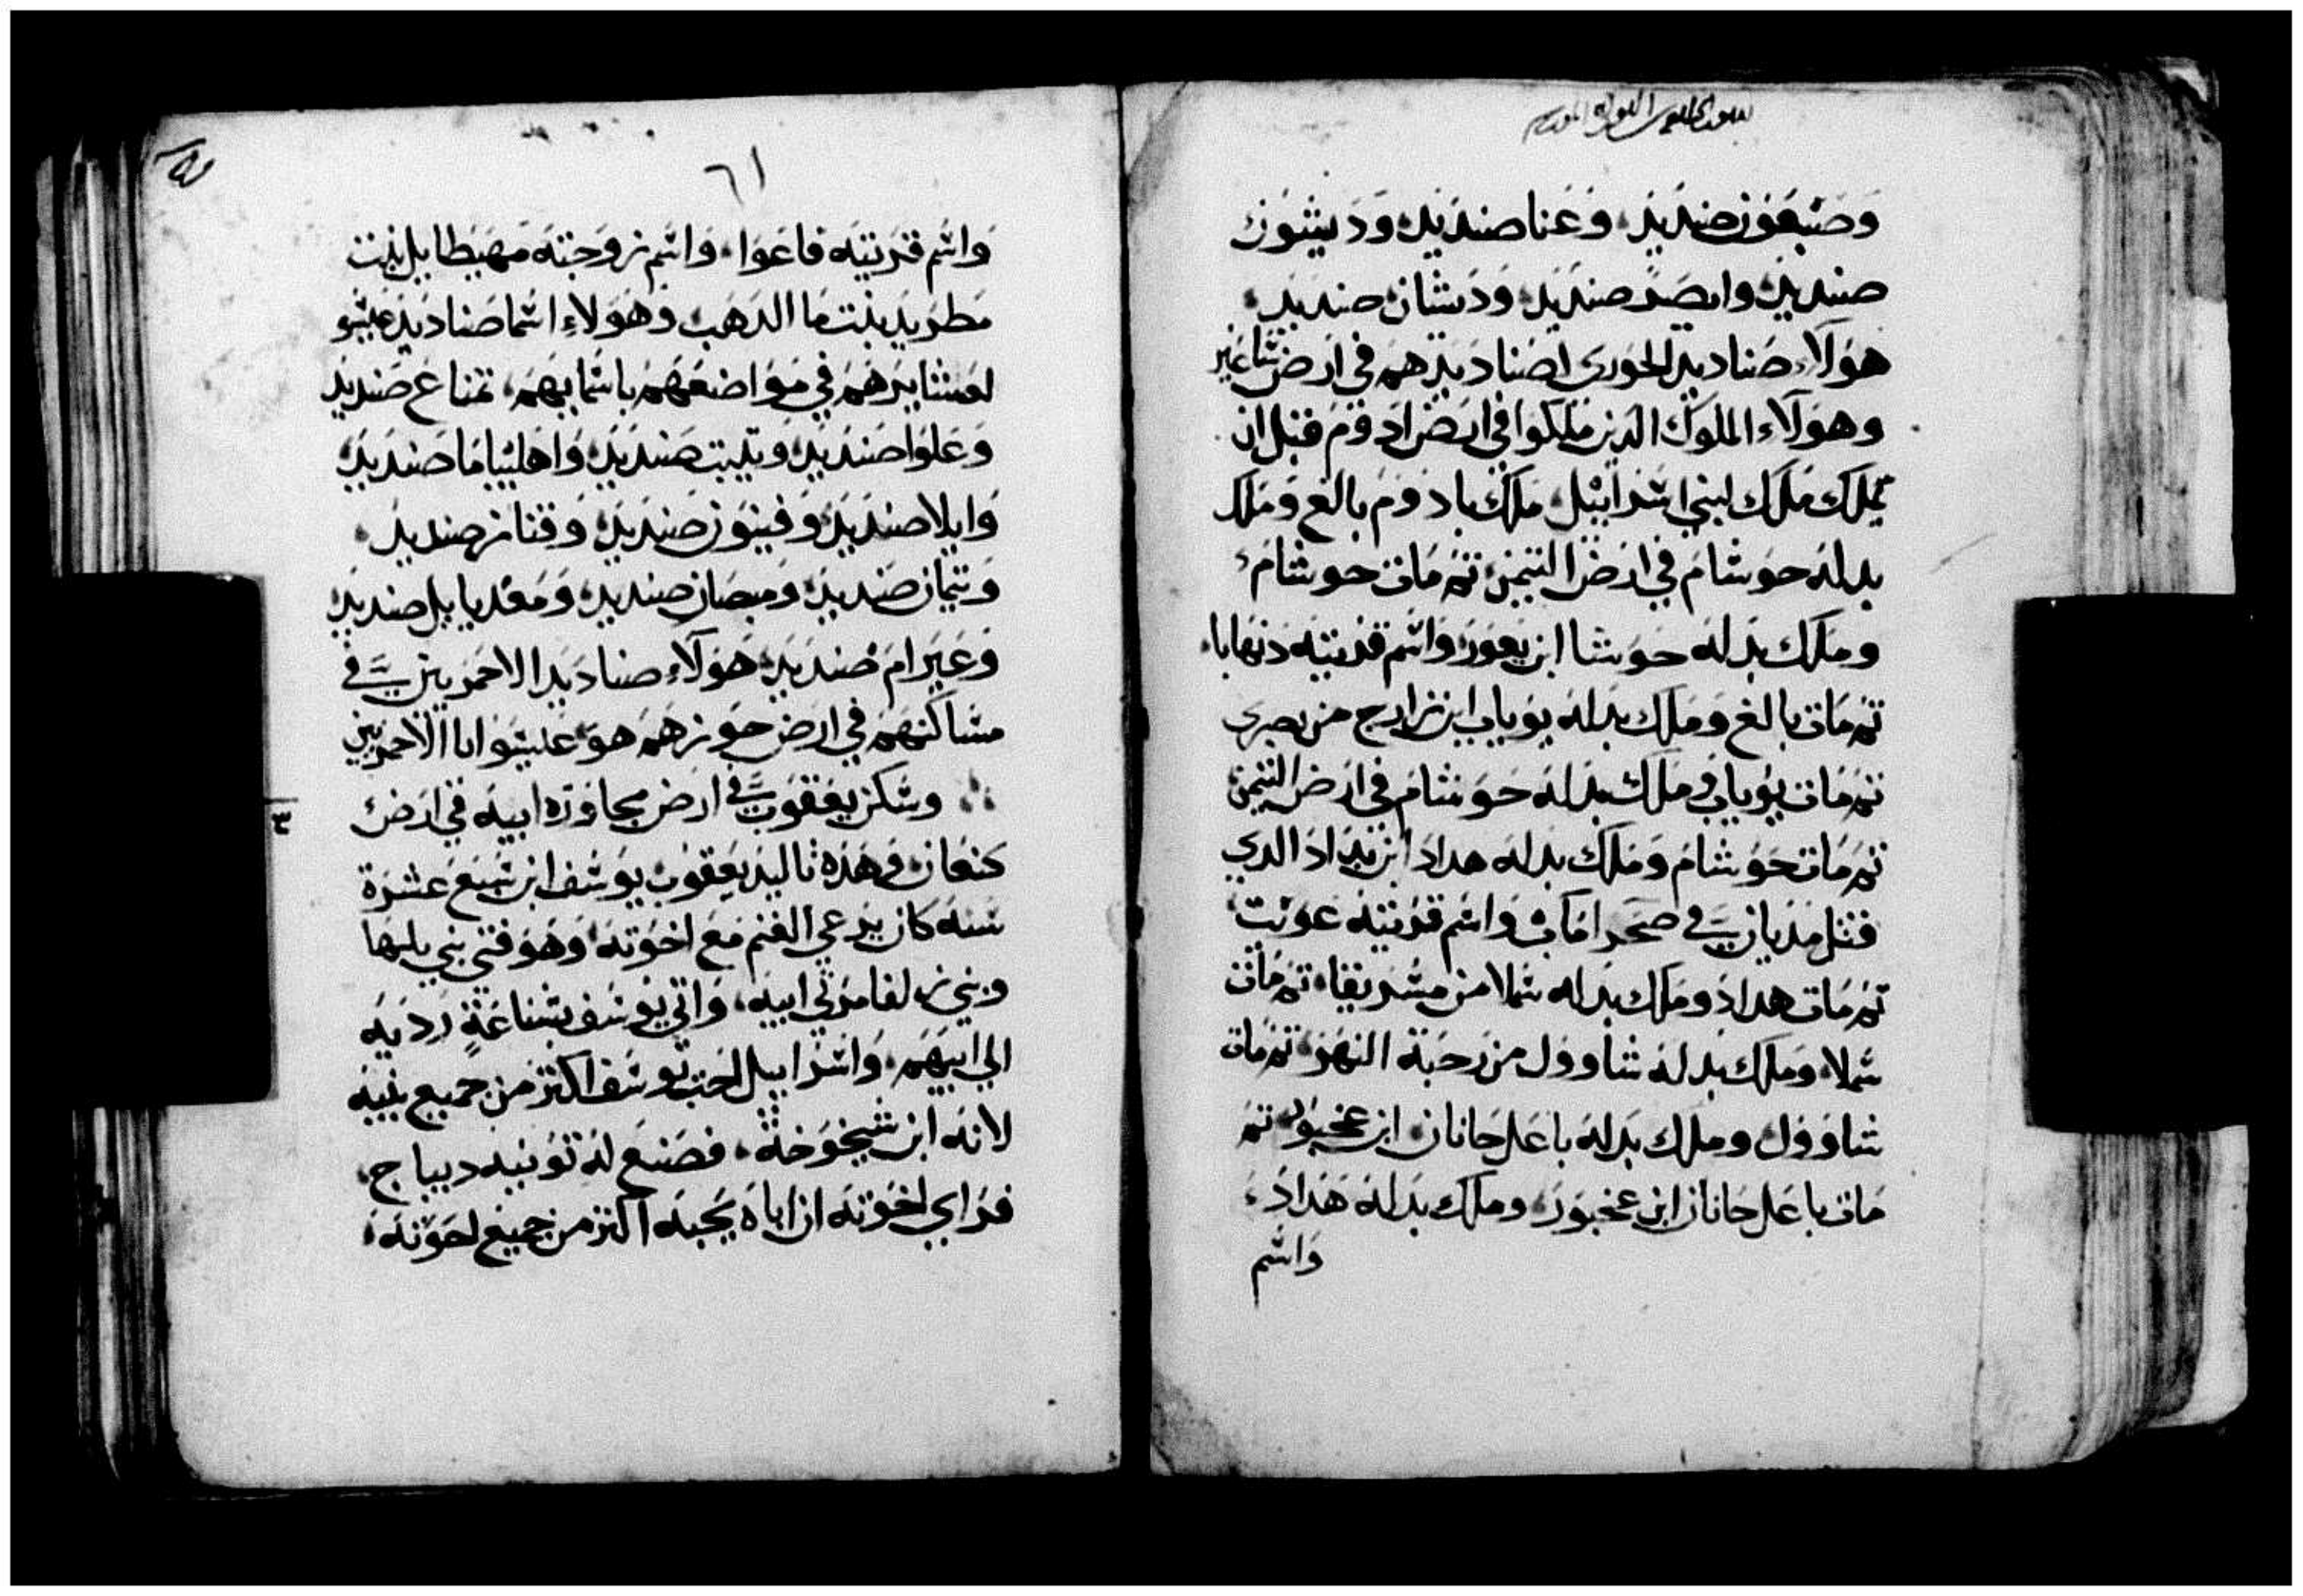 وصبعون صنديد وعنا صنديد وديشون
صنديد وايصر صنديد وديشان صنديد
هولاء صناديد الحوري لصناديدهم في ارض شاغير
وهولاء الملوك الذين ملكوا في ارض ادوم قبل ان
يملك ملك لبني اسرائيل ملك بادوم بالغ وملك
بدله حوشام في ارض التيمن ثم مات حوشام
وملك بدله حوشا ابن يعور واسم قريته دنهابا
ثم مات بالغ وملك بدله يوباب ابن زارح من بصري
ثم مات يوباب وملك بدله حوشام في ارض التيمن
ثم مات حوشام وملك بدله هداد ابن بداد الدي
قتل مديان في صحرا ماب واسم قريته عويت
ثم مات هداد وملك بدله شملا من مسريقا ثم مات
شملا وملك بدله شاوول من رحبة النهر ثم مات
شاوول وملك بدله باعل حانان ابن عخبور ثم
مات باعل حانان ابن عخبور وملك بدله هداد
واسم
٦١
واسم قريته فاعوا واسم زوجته مهيطابل بنت
مطريد بنت ما الدهب وهولاء اسما صناديد عيسو
لعشايرهم في مواضعهم باسمايهم تمناع صنديد
وعلوا صنديد ويتيت صنديد واهليباما صنديد
وايلا صنديد وفينون صنديد وقناز صنديد
وتيمان صنديد ومبصار صنديد ومغديايل صنديد
وعيرام صنديد هولاء صناديد الاحمريين في
مساكنهم في ارض حوزهم هو عيسو ابا الاحمريين
وسكن يعقوب في ارض مجاورة ابيه في ارض
كنعان وهذه تاليد يعقوب يوسف ابن سبع عشرة
سنه كان يرعي الغنم مع اخوته وهو فتي بني بلها
وبني زلفا مرتي ابيه واتي يوسف بشناعة رديه
الي ابيهم واسراييل احب يوسف اكثر من جميع بنيه
لانه ابن شيخوخة فصنع له تونيه ديباج
فراي اخوته ان اباه يحبه اكثر من جميع اخوته